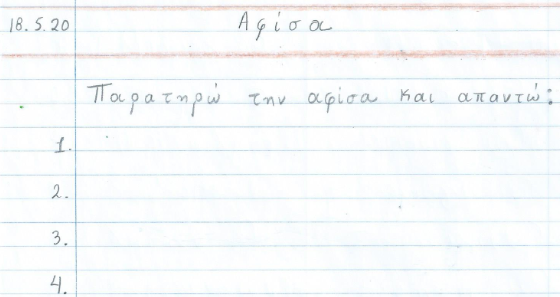 18.5.20 Αφίσα
Παρατηρώ την αφίσα και απαντώ:
1.
2.
3.
4.